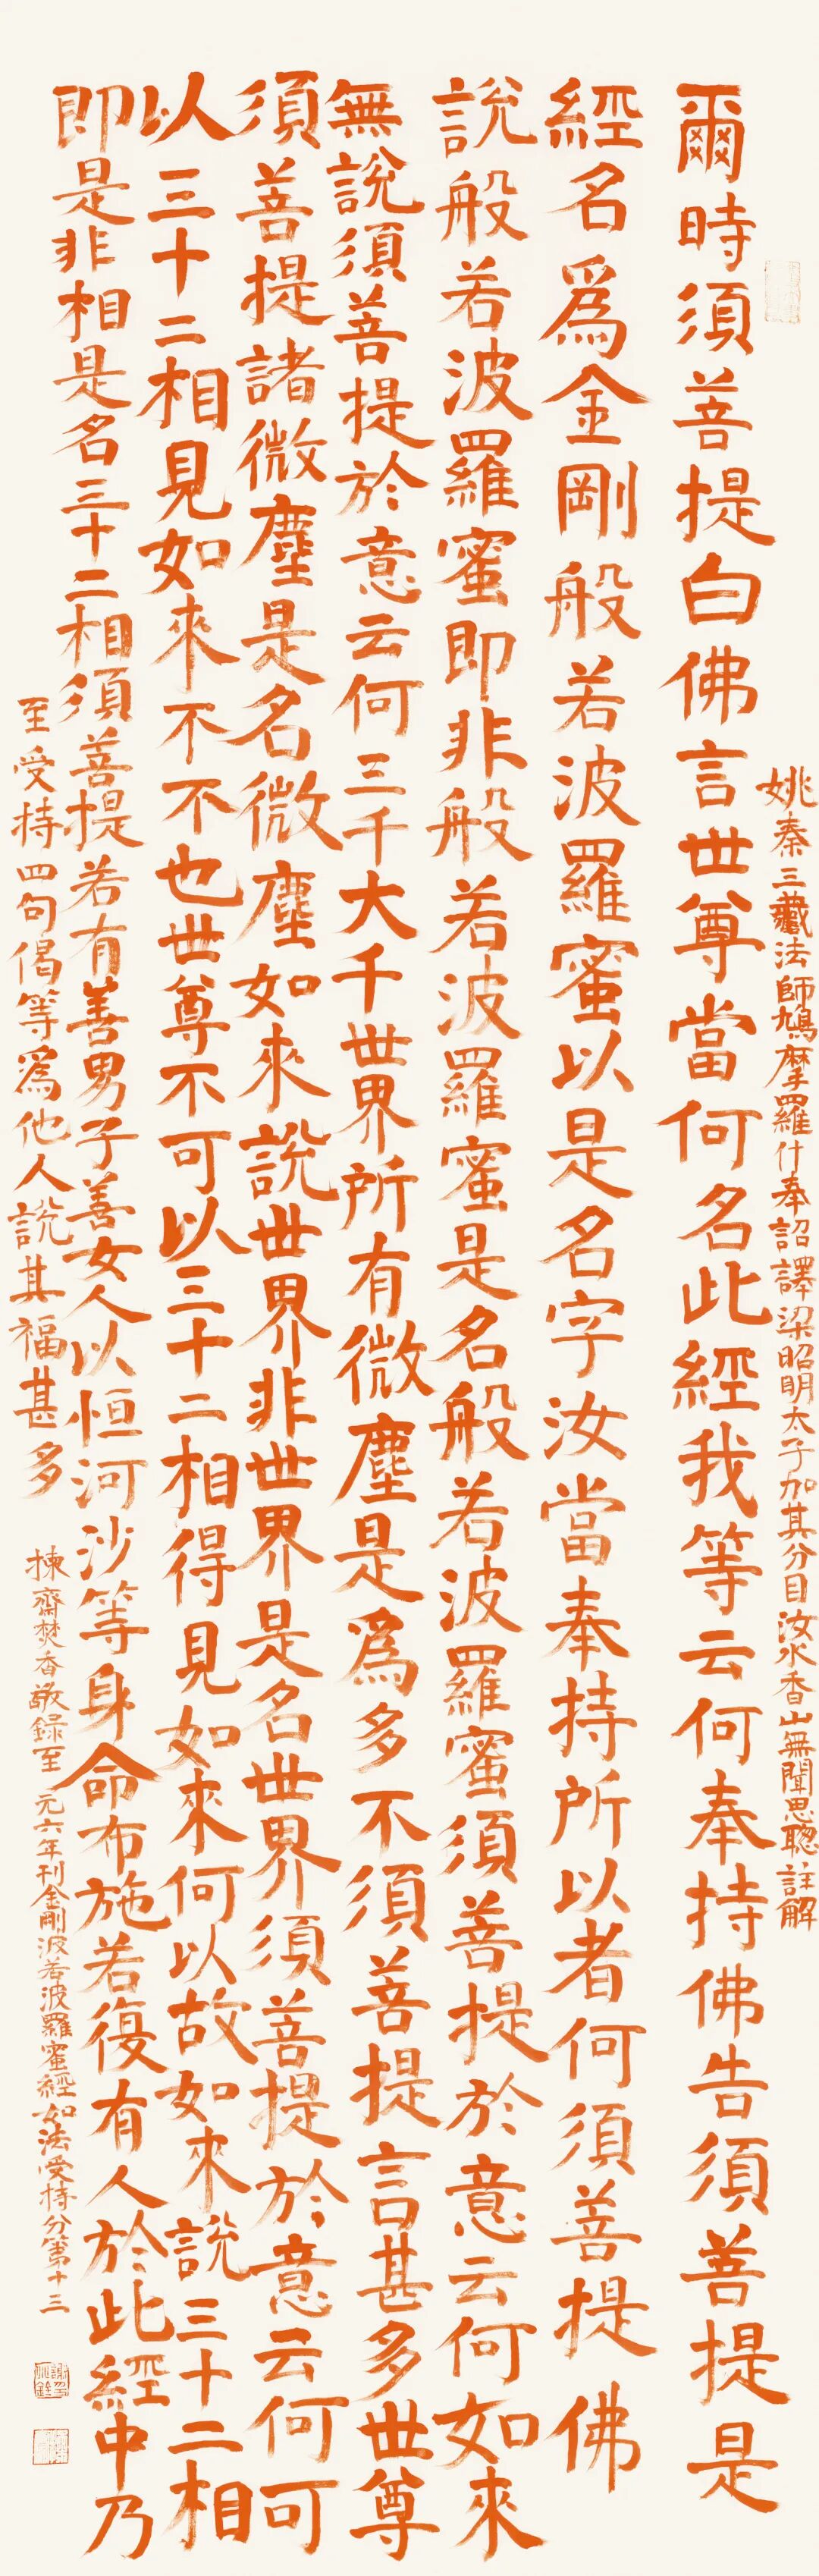 姚秦三藏法師鳩摩羅什奉詔譯梁昭明太子加其分目汝水香山無聞思聰註解
爾時須菩提白佛言世尊當何名此經我等云何奉持佛告須菩提是
經名爲金剛般若波羅蜜以是名字汝當奉持所以者何須菩提佛
說般若波羅蜜即非般若波羅蜜是名般若波羅蜜須菩提於意云何如來
無說須菩提於意云何三千大千世界所有微塵是爲多不須菩提言甚多世尊
須菩提諸微塵是名微塵如來說世界非世界是名世界須菩提於意云何可
以三十二相見如來不不也世尊不可以三十二相得見如來何以故如來說三十二相
即是非相是名三十二相須菩提若有善男子善女人以恒河沙等身命布施若復有人於此經中乃
至受持四句偈等爲他人說其福甚多
揀齋焚香敬錄至元六年刊金剛波若波羅蜜經如法受持分第十三